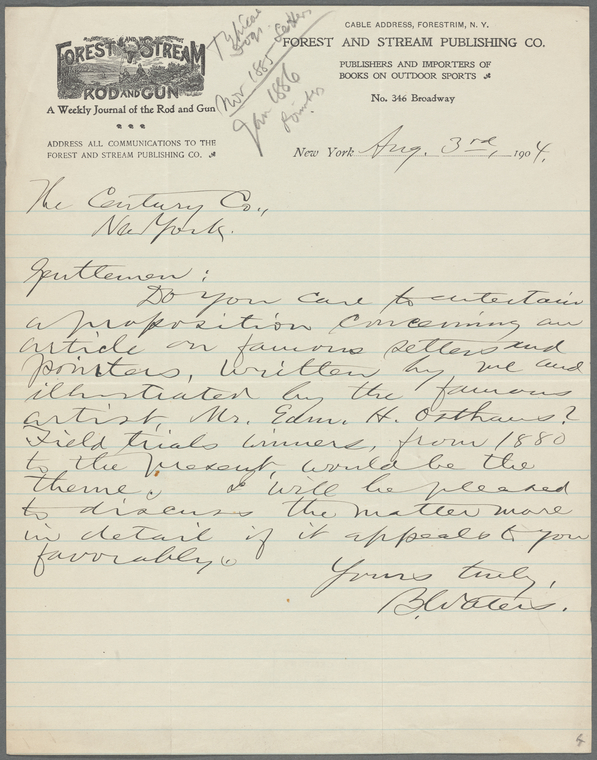 FOREST AND STREAM
ROD AND GUN
A Weekly Journal of the Rod and Gun
ADDRESS ALL COMMUNICATIONS TO THE
FOREST AND STREAM PUBLISHING CO.
Typical
Dogs
Nov 1885 - Setters
Jan 1886
Pointers
CABLE ADDRESS, FORESTRIM, N. Y.
FOREST AND STREAM PUBLISHING CO.
PUBLISHERS AND IMPORTERS OF
BOOKS ON OUTDOOR SPORTS
No. 346 Broadway
New York Aug. 3rd, 1904.
The Century Co.,
New York.
Gentlemen:
Do you care to entertain
a proposition concerning an
article on famous setters and
pointers, written by me and
illustrated by the famous
artist, Mr. Edm. H. Osthaus?
Field trials winners, from 1880
to the present, would be the
theme. I will be pleased
to discuss the matter more
in detail if it appeals to you
favorably.
Yours truly,
B. Waters.